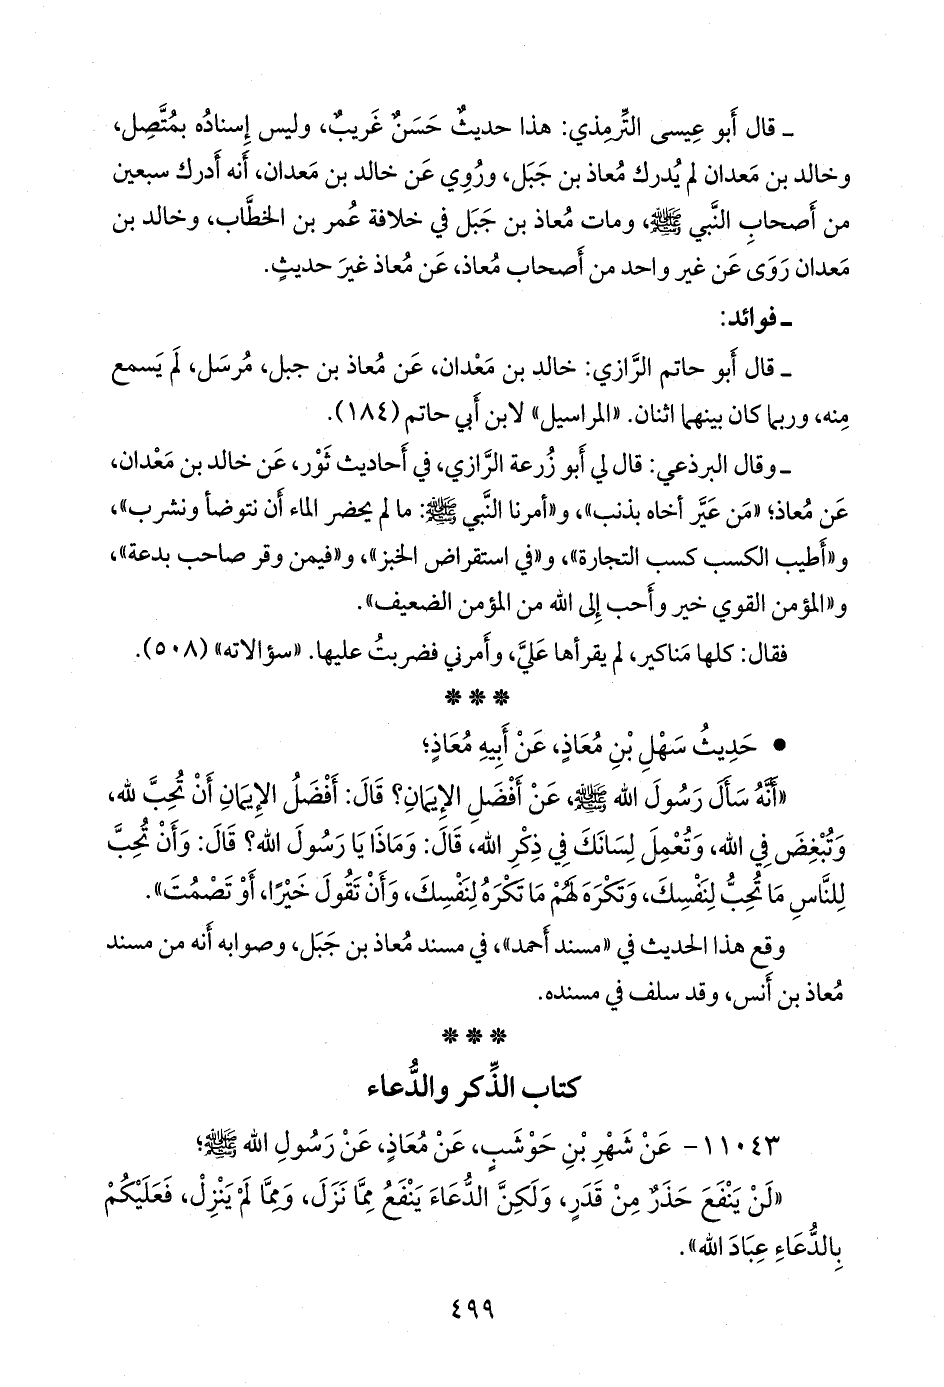 ـ قال أَبو عِيسى التِّرمِذي: هذا حديثٌ حَسَنٌ غَريبٌ، وليس إِسنادُه بمُتَّصِل،
وخالد بن مَعدان لم يُدرك مُعاذ بن جَبَل، ورُوِي عَن خالد بن مَعدان، أَنه أَدرك سبعين
من أَصحابِ النَّبي ﷺ، ومات مُعاذ بن جَبَل في خلافة عُمر بن الخطَّاب، وخالد بن
مَعدان رَوَى عَن غير واحد من أَصحاب مُعاذ، عَن مُعاذ غيرَ حديثٍ.
ـ فوائد:
ـ قال أَبو حاتم الرَّازي: خالد بن مَعْدان، عَن مُعاذ بن جبل، مُرسَل، لَم يَسمع
مِنه، وربما كان بينهما اثنان. «المراسيل» لابن أَبي حاتم (١٨٤).
ـ وقال البرذعي: قال لي أَبو زُرعة الرَّازي، في أَحاديث ثَوْر، عَن خالد بن مَعْدان،
عَن مُعاذ؛ «مَن عَيَّر أخاه بذنب»، و«أمرنا النَّبي ﷺ: ما لم يحضر الماء أَن نتوضأ ونشرب»،
و«أَطيب الكسب كسب التجارة»، و«في استقراض الخبز»، و«فيمن وقر صاحب بدعة»،
و«المؤمن القوي خير وأحب إِلى الله من المؤمن الضعيف».
فقال: كلها مَناكير، لم يقرأها عَليَّ، وأَمرني فضربتُ عليها. «سؤالاته» (٥٠٨).
***
• حَدِيثُ سَهْلِ بْنِ مُعَاذٍ، عَنْ أَبِيهِ مُعَاذٍ؛
«أَنَّهُ سَأَلَ رَسُولَ الله ﷺ، عَنْ أَفْضَلِ الإِيمَانِ؟ قَالَ: أَفْضَلُ الإِيمَانِ أَنْ تُحِبَّ لله،
وَتُبْغِضَ فِي الله، وَتُعْمِلَ لِسَانَكَ فِي ذِكْرِ الله، قَالَ: وَمَاذَا يَا رَسُولَ الله؟ قَالَ: وَأَنْ تُحِبَّ
لِلنَّاسِ مَا تُحِبُّ لِنَفْسِكَ، وَتَكْرَهَ لَهُمْ مَا تَكْرَهُ لِنَفْسِكَ، وَأَنْ تَقُولَ خَيْرًا، أَوْ تَصْمُتَ».
وقع هذا الحديث في «مسند أَحمد»، في مسند مُعاذ بن جَبَل، وصوابه أَنه من مسند
مُعاذ بن أَنس، وقد سلف في مسنده.
***
كتاب الذِّكر والدُّعاء
١١٠٤٣- عَنْ شَهْرِ بْنِ حَوْشَبٍ، عَنْ مُعَاذٍ، عَنْ رَسُولِ الله ﷺ؛
«لَنْ يَنْفَعَ حَذَرٌ مِنْ قَدَرٍ، وَلَكِنَّ الدُّعَاءَ يَنْفَعُ مِمَّا نَزَلَ، وَمِمَّا لَمْ يَنْزِلْ، فَعَلَيْكُمْ
بِالدُّعَاءِ عِبَادَ الله».
٤٩٩